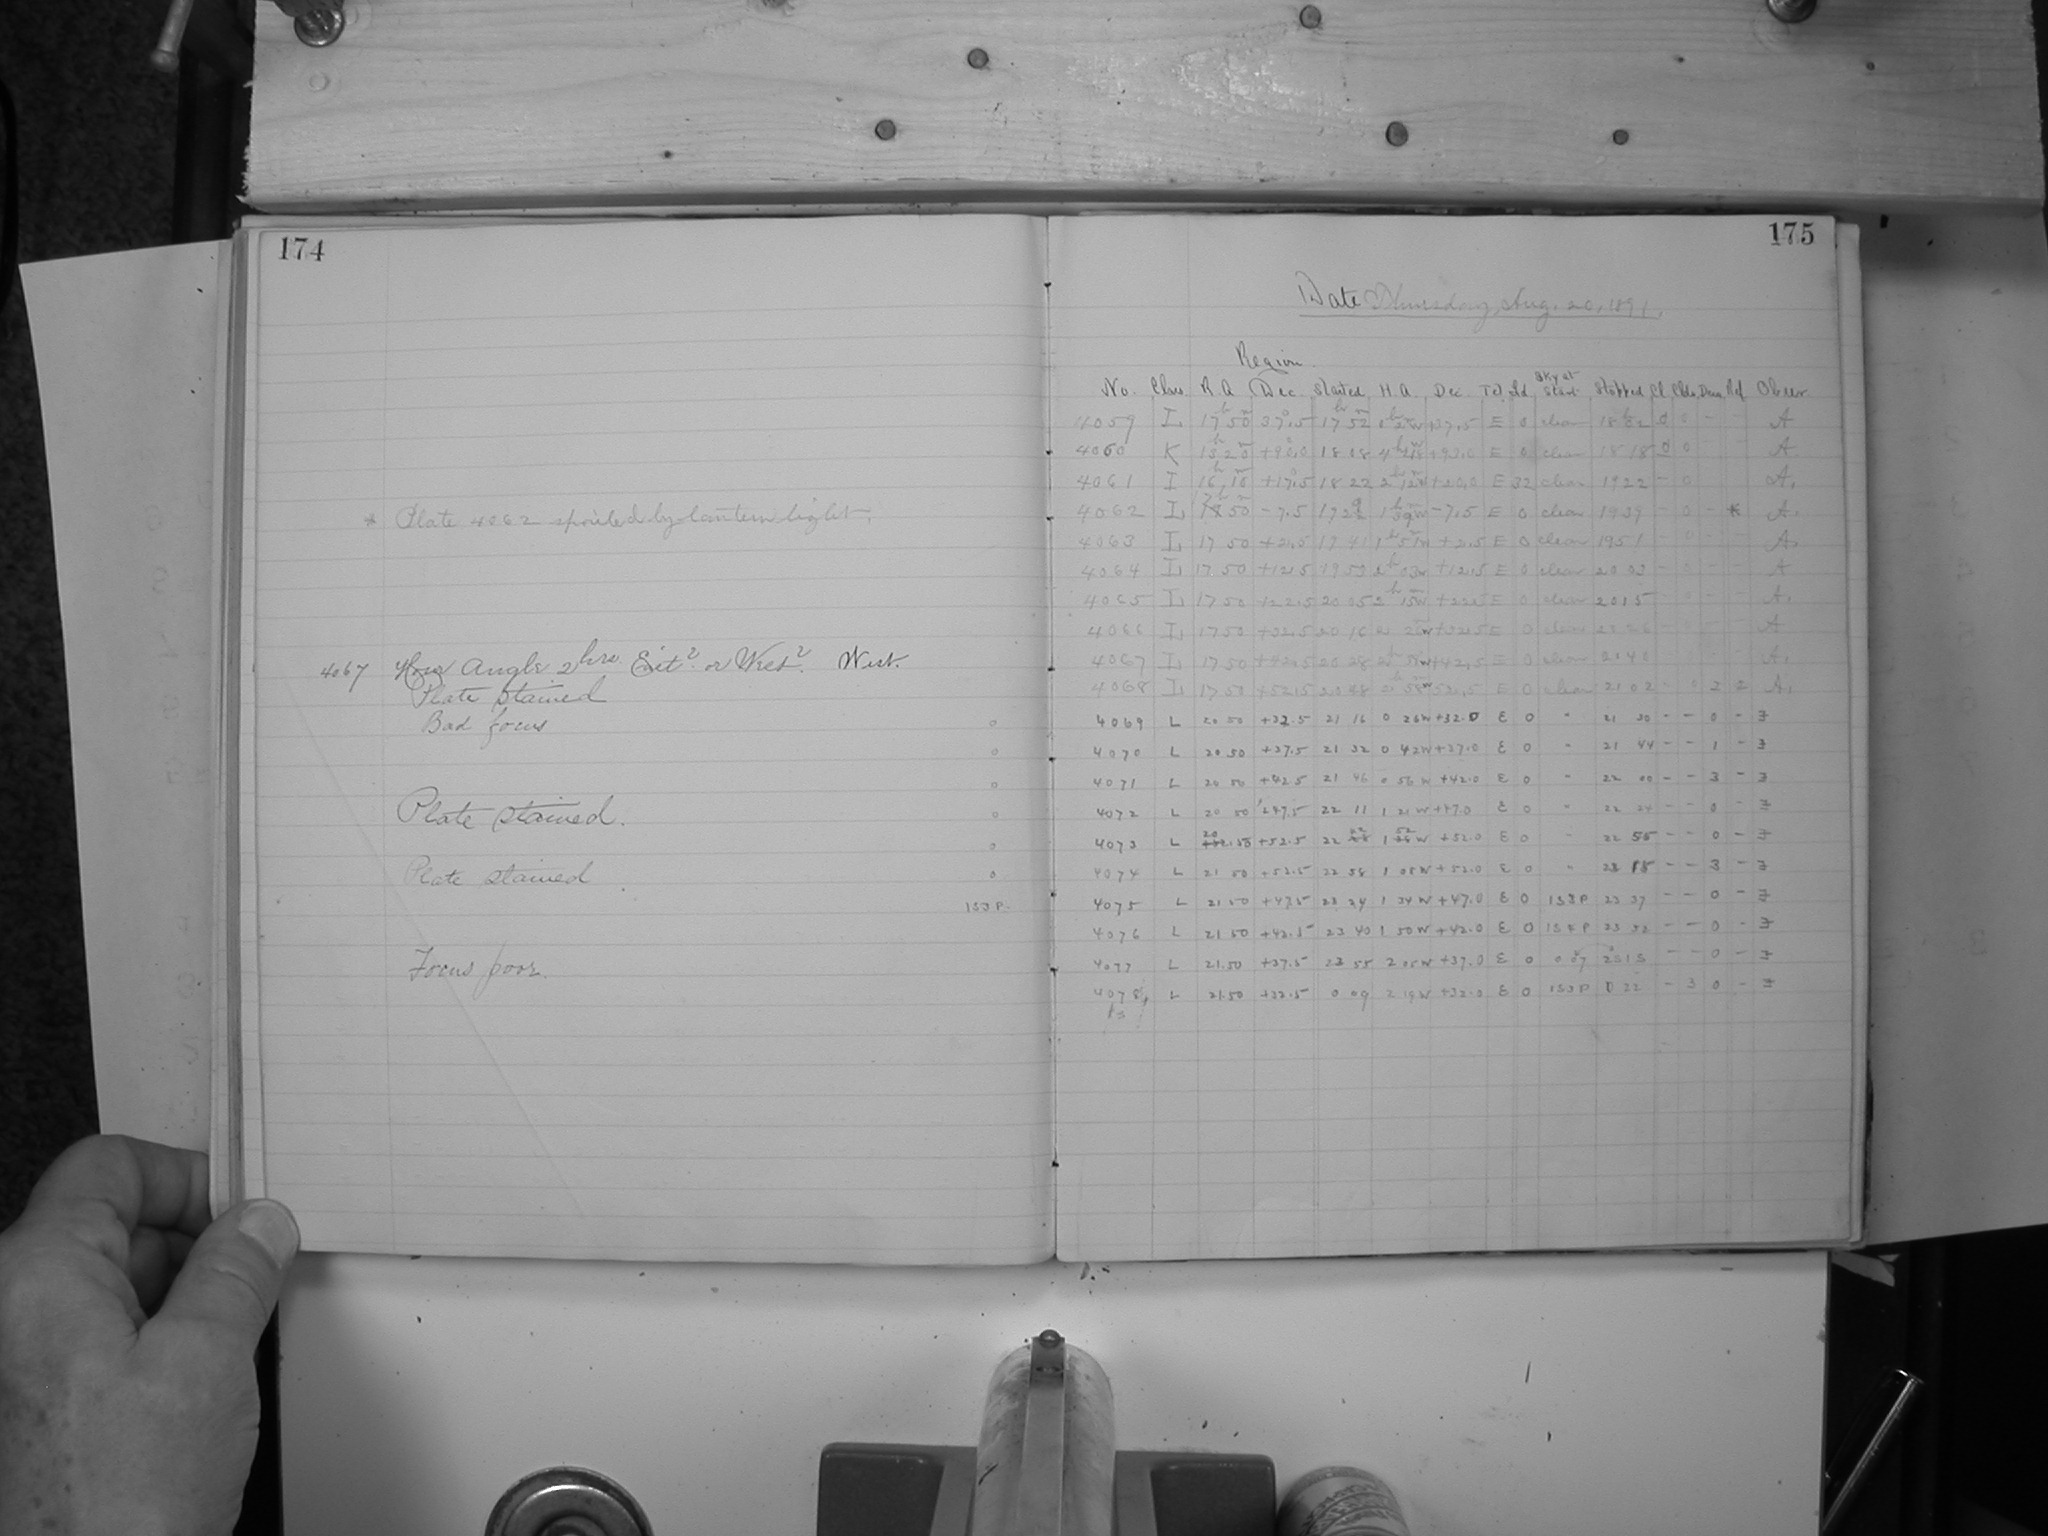 174
* Plate 4062 spoiled by lantern light.
4067 Hour Angle 2hrs. East? or West? West.
Plate Stained
Bad focus
Plate Stained.
Plate stained
153 P.
Focus poor.
175
Date Thursday, Aug. 20, 1891.
Region
No. Class R.A Dec. Started H.A. Dec. Sky at Start Stopped Cl Clds Dew Ref Obser.
4059 L 17 50 37.5 17 52 +37.5 E 0 clear 18 02 0 0 - - A
4060 K +90.0 18 08 E 0 clear 18 18 0 0 A
4061 I +17.5 18 22 +20.0 E 32 clear 19 22 - 0 A.
4062 L 50 -7.5 1 39w -7.5 E 0 clear 19 39 - 0 - * A.
4063 L 17 50 +2.5 1 51w +2.5 E 0 clear 19 51 - 0 - - A.
4064 L 17 50 +12.5 19 53 2 03w +12.5 E 0 clear 20 03 - 0 - - A
4065 L 17 50 +22.5 20 05 2 15w +22.5 E 0 clear 20 15 A.
4066 L 17 50 +32.5 20 16 +32.5 E 0 clear A
4067 L 17 50 +42.5 20 28 +42.5 E 0 clear 20 40 A.
4068 L 17 50 +52.5 20 48 2 58w 52.5 E 0 clear 21 02 - 0 2 2 A.
4069 L 20 50 +32.5 21 16 0 26W +32.0 E 0 " 21 30 - - 0 -
4070 L 20 50 +37.5 21 32 0 42W +37.0 E 0 " 21 44 - - 1 -
4071 L 20 50 +42.5 21 46 0 56W +42.0 E 0 " 22 00 - - 3 -
4072 L 20 50 +47.5 22 11 1 21W +47.0 E 0 " 22 24 - - 0 -
4073 L 20 50 +52.5 22 42 1 52 W +52.0 E 0 " 22 55 - - 0 -
4074 L 21 50 +52.5 22 58 1 08W +52.0 E 0 " - - 3 -
4075 L 21 50 +47.5 23 24 1 34W +47.0 E 0 153P 23 37 - - 0 -
4076 L 21 50 +42.5 23 40 1 50W +42.0 E 0 - - 0 -
4077 L 21.50 +37.5 23 55 2 05W +37.0 E 0 - - 0 -
4078 L 21.50 +32.5 0 09 2 19W +32.0 E 0 153P 0 22 - 3 0 -